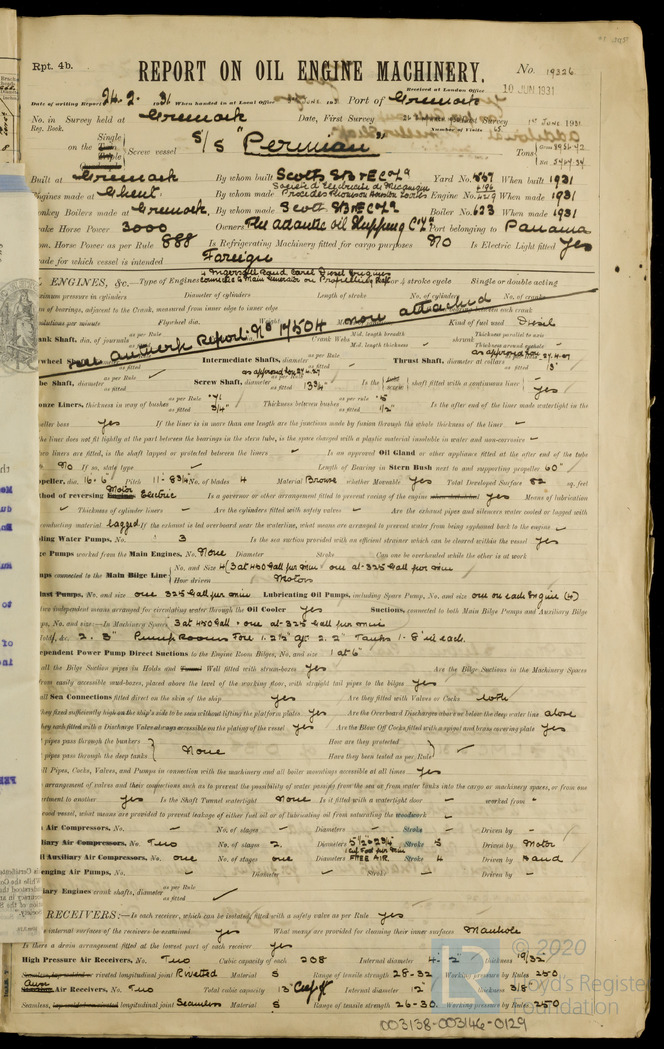 Rpt. 4b.
REPORT ON OIL ENGINE MACHINERY.
No. 19326
Received at London Office 10 JUN 1931
Date of writing Report 24.2. 1931 When handed in at Local Office JUNE 193 Port of Greenock
No. in Survey held at Greenock Date, First Survey Last Survey 1st JUNE 1931
Reg. Book. Number of Visits 65
on the Single Screw vessel S/S "Permian" Tons
Built at Greenock By whom built Scotts S.B & E Co Ld Yard No. 557 When built 1931
Engines made at Ghent By whom made Engine No. When made 1931
Donkey Boilers made at Greenock By whom made Scotts S.B & E Co Ld Boiler No. 623 When made 1931
Brake Horse Power 3000 Owners The Adantic Oil Shipping Co Ld Port belonging to Panama
Nom. Horse Power as per Rule 888 Is Refrigerating Machinery fitted for cargo purposes No Is Electric Light fitted Yes
Trade for which vessel is intended Foreign
ENGINES, &c.—Type of Engines 4 Ingersoll Rand Carel Diesel Engines or 4 stroke cycle Single or double acting
Maximum pressure in cylinders Diameter of cylinders Length of stroke No. of cylinders No. of cranks
of bearings, adjacent to the Crank, measured from inner edge to inner edge
Revolutions per minute Flywheel dia. Weight Kind of fuel used Diesel
See Antwerp Report No 17504 now attached
Crank Shaft, dia. of journals as per Rule as fitted Crank Webs Mid. length breadth Mid. length thickness shrunk Thickness parallel to axis Thickness around eyehole
Flywheel Shaft, Intermediate Shafts, diameter as per Rule as fitted Thrust Shaft, diameter at collars as approved 27.4.27 as fitted 13"
Tube Shaft, diameter as per Rule as fitted Screw Shaft, diameter as approved 27.4.27 as fitted 13¾" Is the screw shaft fitted with a continuous liner yes
Bronze Liners, thickness in way of bushes as per Rule .71 as fitted ¾" Thickness between bushes as per rule as fitted ½" Is the after end of the liner made watertight in the
propeller boss yes If the liner is in more than one length are the junctions made by fusion through the whole thickness of the liner –
If the liner does not fit tightly at the part between the bearings in the stern tube, is the space charged with a plastic material insoluble in water and non-corrosive –
If two liners are fitted, is the shaft lapped or protected between the liners – Is an approved Oil Gland or other appliance fitted at the after end of the tube
No If so, state type – Length of Bearing in Stern Bush next to and supporting propeller 60"
Propeller, dia. 16'-6" Pitch 11'-8¾" No. of blades 4 Material Bronze whether Moveable Yes Total Developed Surface 82 sq. feet
Method of reversing Motor Electric Is a governor or other arrangement fitted to prevent racing of the engine yes Means of lubrication
Thickness of cylinder liners – Are the cylinders fitted with safety valves – Are the exhaust pipes and silencers water cooled or lagged with
non-conducting material lagged If the exhaust is led overboard near the waterline, what means are arranged to prevent water from being syphoned back to the engine –
Cooling Water Pumps, No. 3 Is the sea suction provided with an efficient strainer which can be cleared within the vessel yes
Bilge Pumps worked from the Main Engines, No. None Diameter Stroke Can one be overhauled while the other is at work
Pumps connected to the Main Bilge Line No. and Size 4 (3 at 450 Gall per min one at 325 Gall per min
How driven Motors
Ballast Pumps, No. and size one 325 Gall per min Lubricating Oil Pumps, including Spare Pump, No. and size one on each Engine (4)
Are two independent means arranged for circulating water through the Oil Cooler yes Suctions, connected to both Main Bilge Pumps and Auxiliary Bilge
Pumps, No. and size:—In Machinery Spaces 3 at 450 Gall. one at 325 Gall per min
Holds, &c. 2. 3" Pump Rooms Fore 1. 2½" Aft 2. 2" Tanks 1- 8" in each.
Independent Power Pump Direct Suctions to the Engine Room Bilges, No. and size 1 at 6"
Are all the Bilge Suction pipes in Holds and Well fitted with strum-boxes yes Are the Bilge Suctions in the Machinery Spaces
led from easily accessible mud-boxes, placed above the level of the working floor, with straight tail pipes to the bilges yes
Are all Sea Connections fitted direct on the skin of the ship yes Are they fitted with Valves or Cocks both
Are they fixed sufficiently high on the ship's side to be seen without lifting the platform plates yes Are the Overboard Discharges above or below the deep water line above
Are they each fitted with a Discharge Valve always accessible on the plating of the vessel yes Are the Blow Off Cocks fitted with a spigot and brass covering plate yes
What pipes pass through the bunkers How are they protected
What pipes pass through the deep tanks None Have they been tested as per Rule –
Are all Pipes, Cocks, Valves, and Pumps in connection with the machinery and all boiler mountings accessible at all times yes
Is the arrangement of valves and their connections such as to prevent the possibility of water passing from the sea or from water tanks into the cargo or machinery spaces, or from one
compartment to another yes Is the Shaft Tunnel watertight None Is it fitted with a watertight door – worked from –
If a wood vessel, what means are provided to prevent leakage of either fuel oil or of lubricating oil from saturating the woodwork –
Main Air Compressors, No. – No. of stages – Diameters – Stroke – Driven by –
Auxiliary Air Compressors, No. Two No. of stages 2 Diameters Stroke 5 Driven by Motor
Small Auxiliary Air Compressors, No. one No. of stages one Diameters FREE AIR Stroke 4 Driven by Hand
Scavenging Air Pumps, No. – Diameter – Stroke – Driven by –
Auxiliary Engines crank shafts, diameter as per Rule as fitted
AIR RECEIVERS:—Is each receiver, which can be isolated, fitted with a safety valve as per Rule yes
Can the internal surfaces of the receivers be examined yes What means are provided for cleaning their inner surfaces Manhole
Is there a drain arrangement fitted at the lowest part of each receiver yes
High Pressure Air Receivers, No. Two Cubic capacity of each 208 Internal diameter 4'-2" thickness 19/32"
Seamless, lap welded or riveted longitudinal joint Rivetted Material S Range of tensile strength 28-32 Working pressure by Rules 250
Auxr Air Receivers, No. Two Total cubic capacity 13 Cub ft Internal diameter 12" thickness 3/8"
Seamless, lap welded or riveted longitudinal joint Seamless Material S Range of tensile strength 26-30 Working pressure by Rules 250
© 2020
Lloyd's Register
Foundation
003138-003146-0129